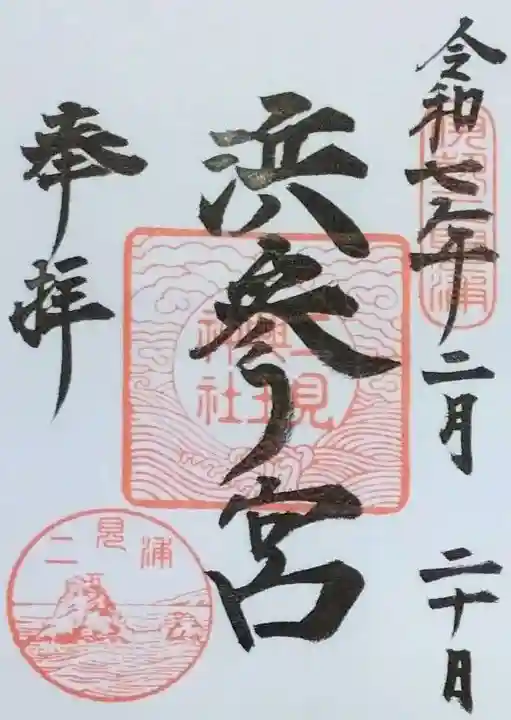 令和七年二月二十日
浜参宮
奉拝
二見興玉神社
二見浦